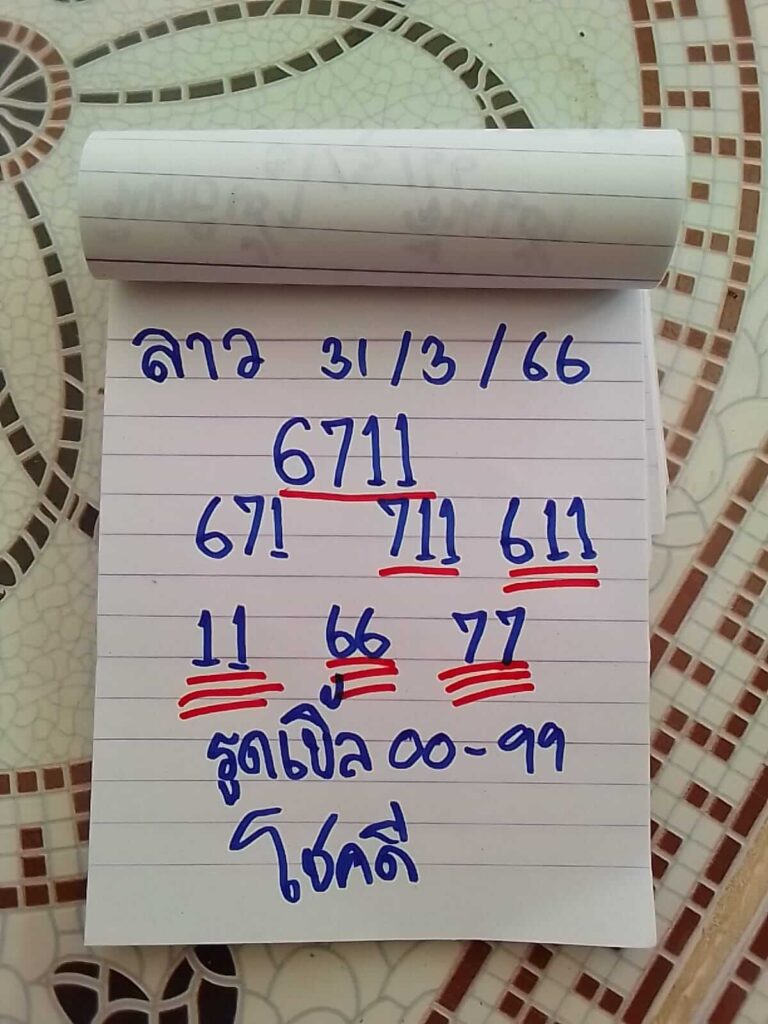 ลาว 31/3/66
6711
671 711 611
11 66 77
รูดเบิ้ล 00-99
โชคดี